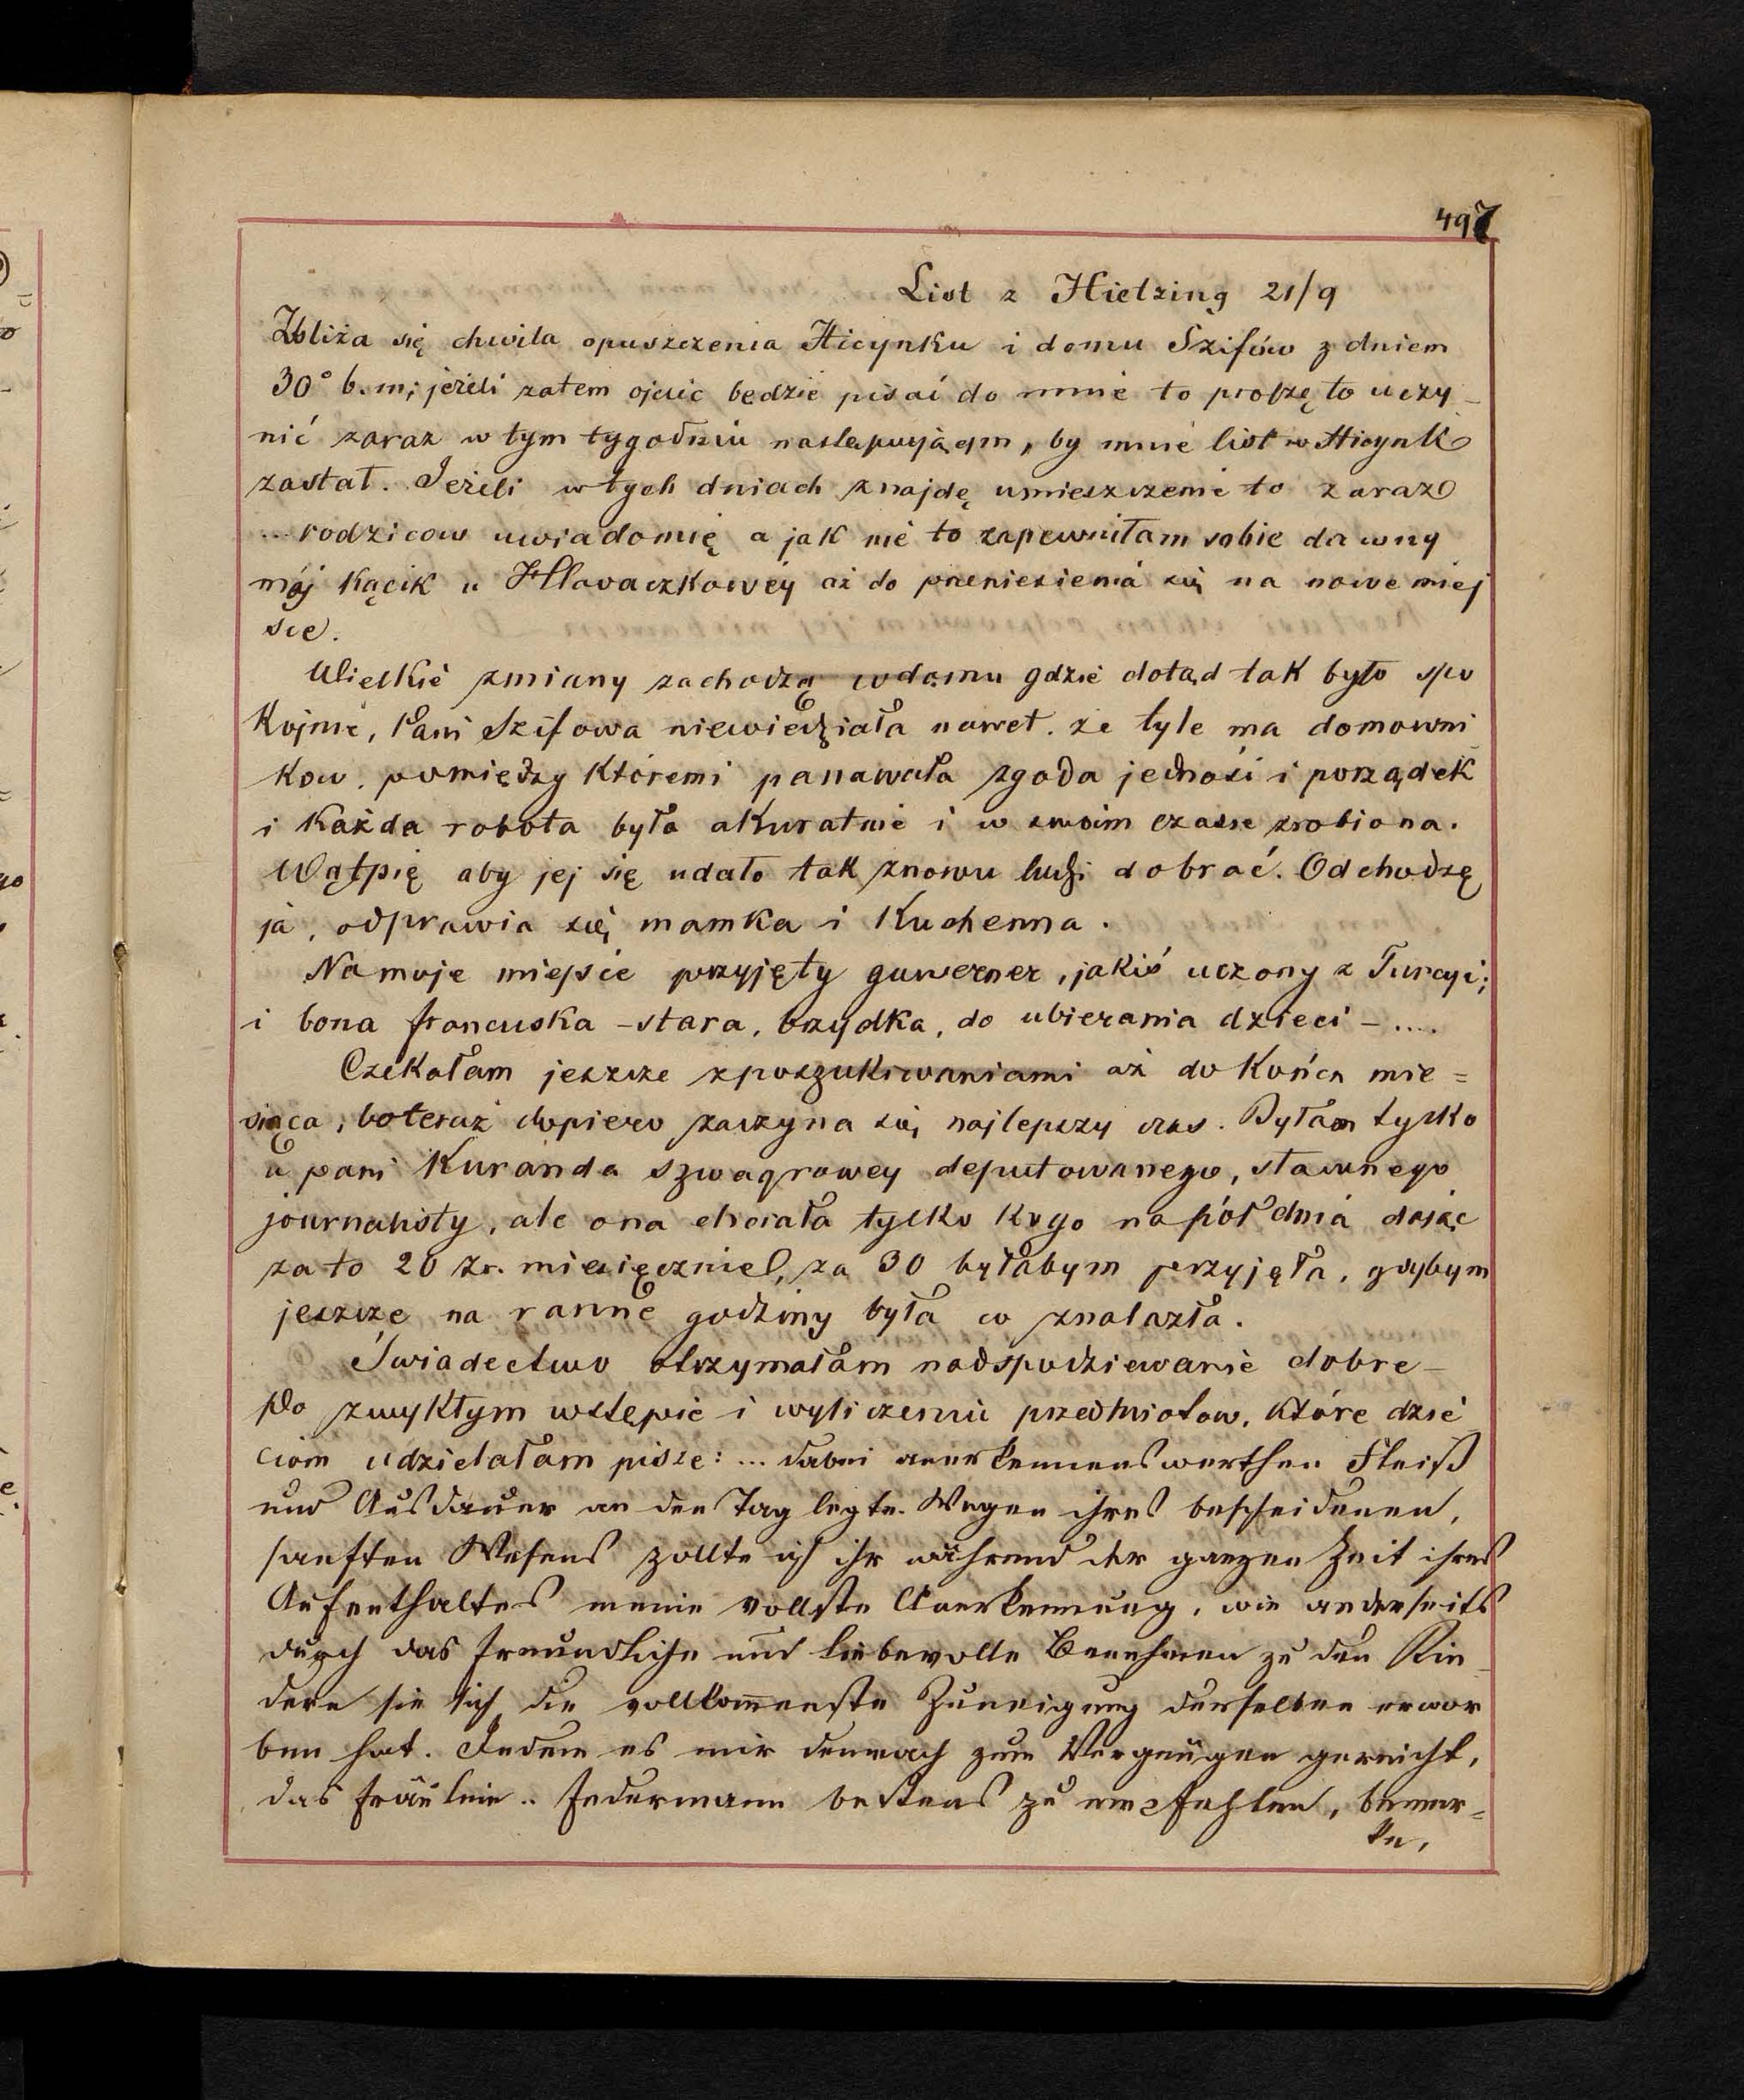 497
List z Hietzing 21/9
Zbliża się chwila opuszczenia Hicynku i domu Szifów z dniem
30° b.m; jeżeli zatem ojciec będzie pisać do mnie to proszę to uczy-
nić zaraz w tym tygodniu następującym, by mnie list w Hicynk
zastał. Jeżeli w tych dniach znajdę umieszczenie to zaraz
... rodziców uwiadomię a jak nie to zapewniłam sobie dawny
mój kącik u Hlavaczkowéy aż do przeniesienia się na nowe miej
sce.
Wielkie zmiany zachodzą w domu gdzie dotąd tak było spo
kojnie, Pani Szifowa niewiedziała nawet. że tyle ma domowni
kow. pomiędzy któremi panawała zgoda jedność i porządek
i każda robota była akuratnie i w swoim czasie zrobiona.
Wątpię aby jej się udało tak znowu ludzi dobrać. Odchodzę
ja, odprawia się mamka i Kuchenna.
Na moje miejsce przyjęty guwerner, jakiś uczony z Turcyi;
i bona francuska - stara, brzydka, do ubierania dzieci - ....
Czekałam jeszcze z poszukiwaniami aż do końca mie=
siąca, bo teraz dopiero zaczyna się najlepszy czas. Byłam tylko
u pani Kuranda szwagrowey deputowanego, sławnego
journalisty, ale ona chciała tylko kogo na pół dnia dając
za to 20 zr. miesięcznie, za 30 byłabym przyjęła, gdybym
jeszcze na ranne godziny była co znalazła.
Świadectwo otrzymałam nadspodziewanie dobre-
Po zwykłym wstępie i wyliczeniu przedmiotow, które dzie
ciom udzielałam pisze: ... dabei anerkennenswerthen Fleiß
und Ausdauer an den Tag legte. Wegen ihres bescheidenen,
sanften Wesens zollte ich ihr während der ganzen Zeit ihres
Aufenthaltes meine vollste Anerkennung, wie anderseits
durch das freundliche und liebevolle Benehmen zu den Kin-
dern sie sich die vollkom̅enste Zuneigung derselben erwor
ben hat. Indem es mir demnach zum Vergnügen gereicht,
das Fräulein .. Jedermann bestens zu empfehlen, bemer=
ke,